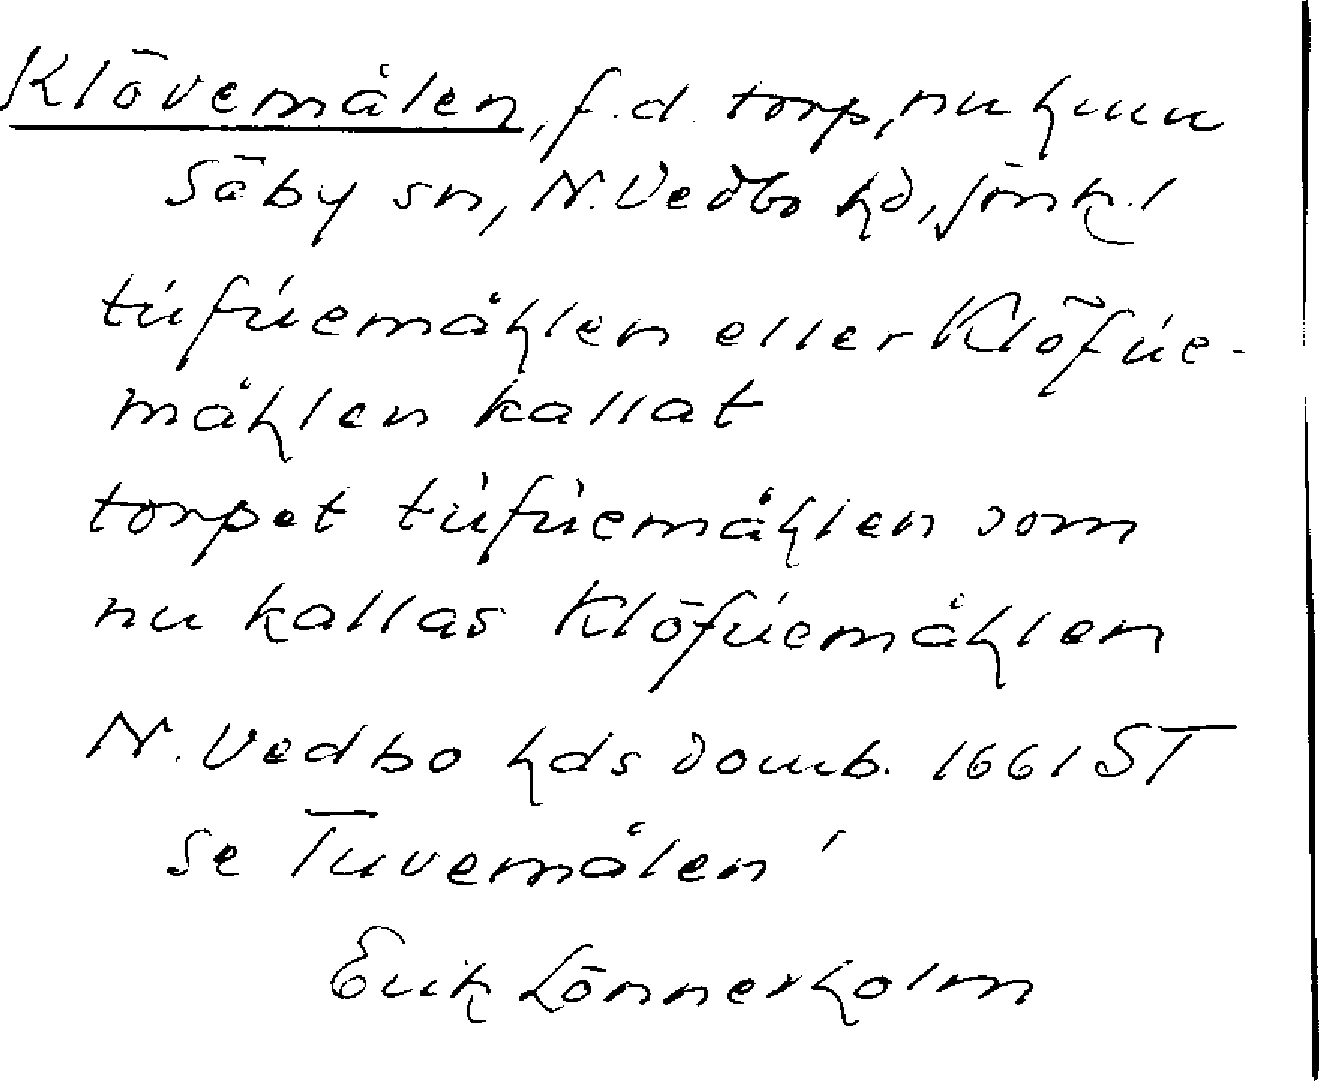 Klövemålen, f.d. torp, nu hmn
Säby sn, N. Vedbo hd, Jönk. l
túfúemåhlen eller Klöfúe-
måhlen kallat
torpet túfúemåhlen som
nu kallas Klöfúemåhlen
N. Vedbo hds domb. 1661 ST
Se Tuvemålen
Erik Lönnerholm